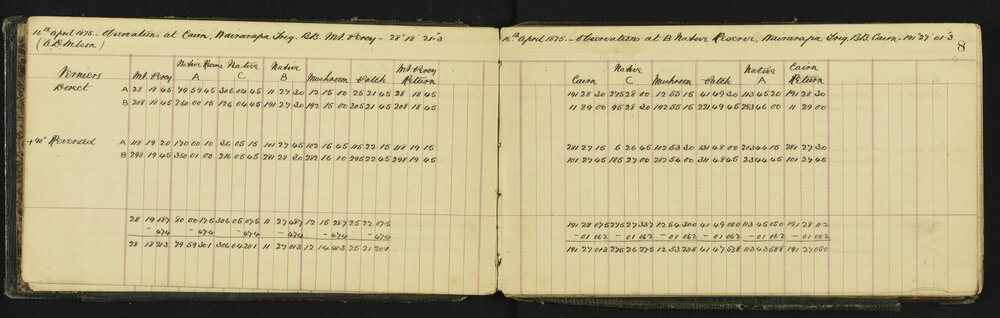 16th April 1875 - Observations at Cairn, Wairarapa Freq. B.B. Mt. Percy - 28° 18' 21"3
(A.D. Wilson)
Native Reserve Native Native Mt. Percy
Verniers Mt. Percy A C B Mushroom Patch Return
Direct A 28 18 45 79 59 45 306 04 45 11 27 30 12 15 00 25 21 45 28 18 45
B 208 18 45 260 00 15 126 04 45 191 27 30 192 15 00 205 21 45 208 18 45
+90° Reversed A 118 19 20 170 00 10 36 05 15 101 27 45 102 15 45 115 22 15 118 19 15
B 298 19 45 350 01 00 216 05 45 281 28 30 282 16 10 295 22 45 298 19 45
28 19 087 80 00 175 306 05 075 11 27 487 12 15 287 25 22 075
- 474 - 474 - 474 - 474 - 474 - 474
28 18 213 79 59 301 306 04 201 11 27 013 12 14 413 25 21 201
16th April 1875 - Observations at B Native Reserve, Wairarapa Freq. B.B. Cairn - 191° 27' 01"3
8
Native Native Cairn
Cairn C Mushroom Patch A Return
191 28 30 275 28 00 12 55 15 41 49 30 113 45 20 191 28 30
11 29 00 95 28 30 192 55 15 221 49 45 293 46 00 11 29 00
281 27 15 5 26 45 102 53 30 131 48 00 203 44 15 281 27 30
101 27 45 185 27 00 282 54 00 311 48 45 23 44 45 101 27 45
191 28 075 275 27 337 12 54 300 41 49 000 113 45 050 191 28 112
- 01 062 - 01 062 - 01 062 - 01 062 - 01 062 - 01 062
191 27 013 275 26 275 12 53 238 41 47 538 113 43 588 191 27 050